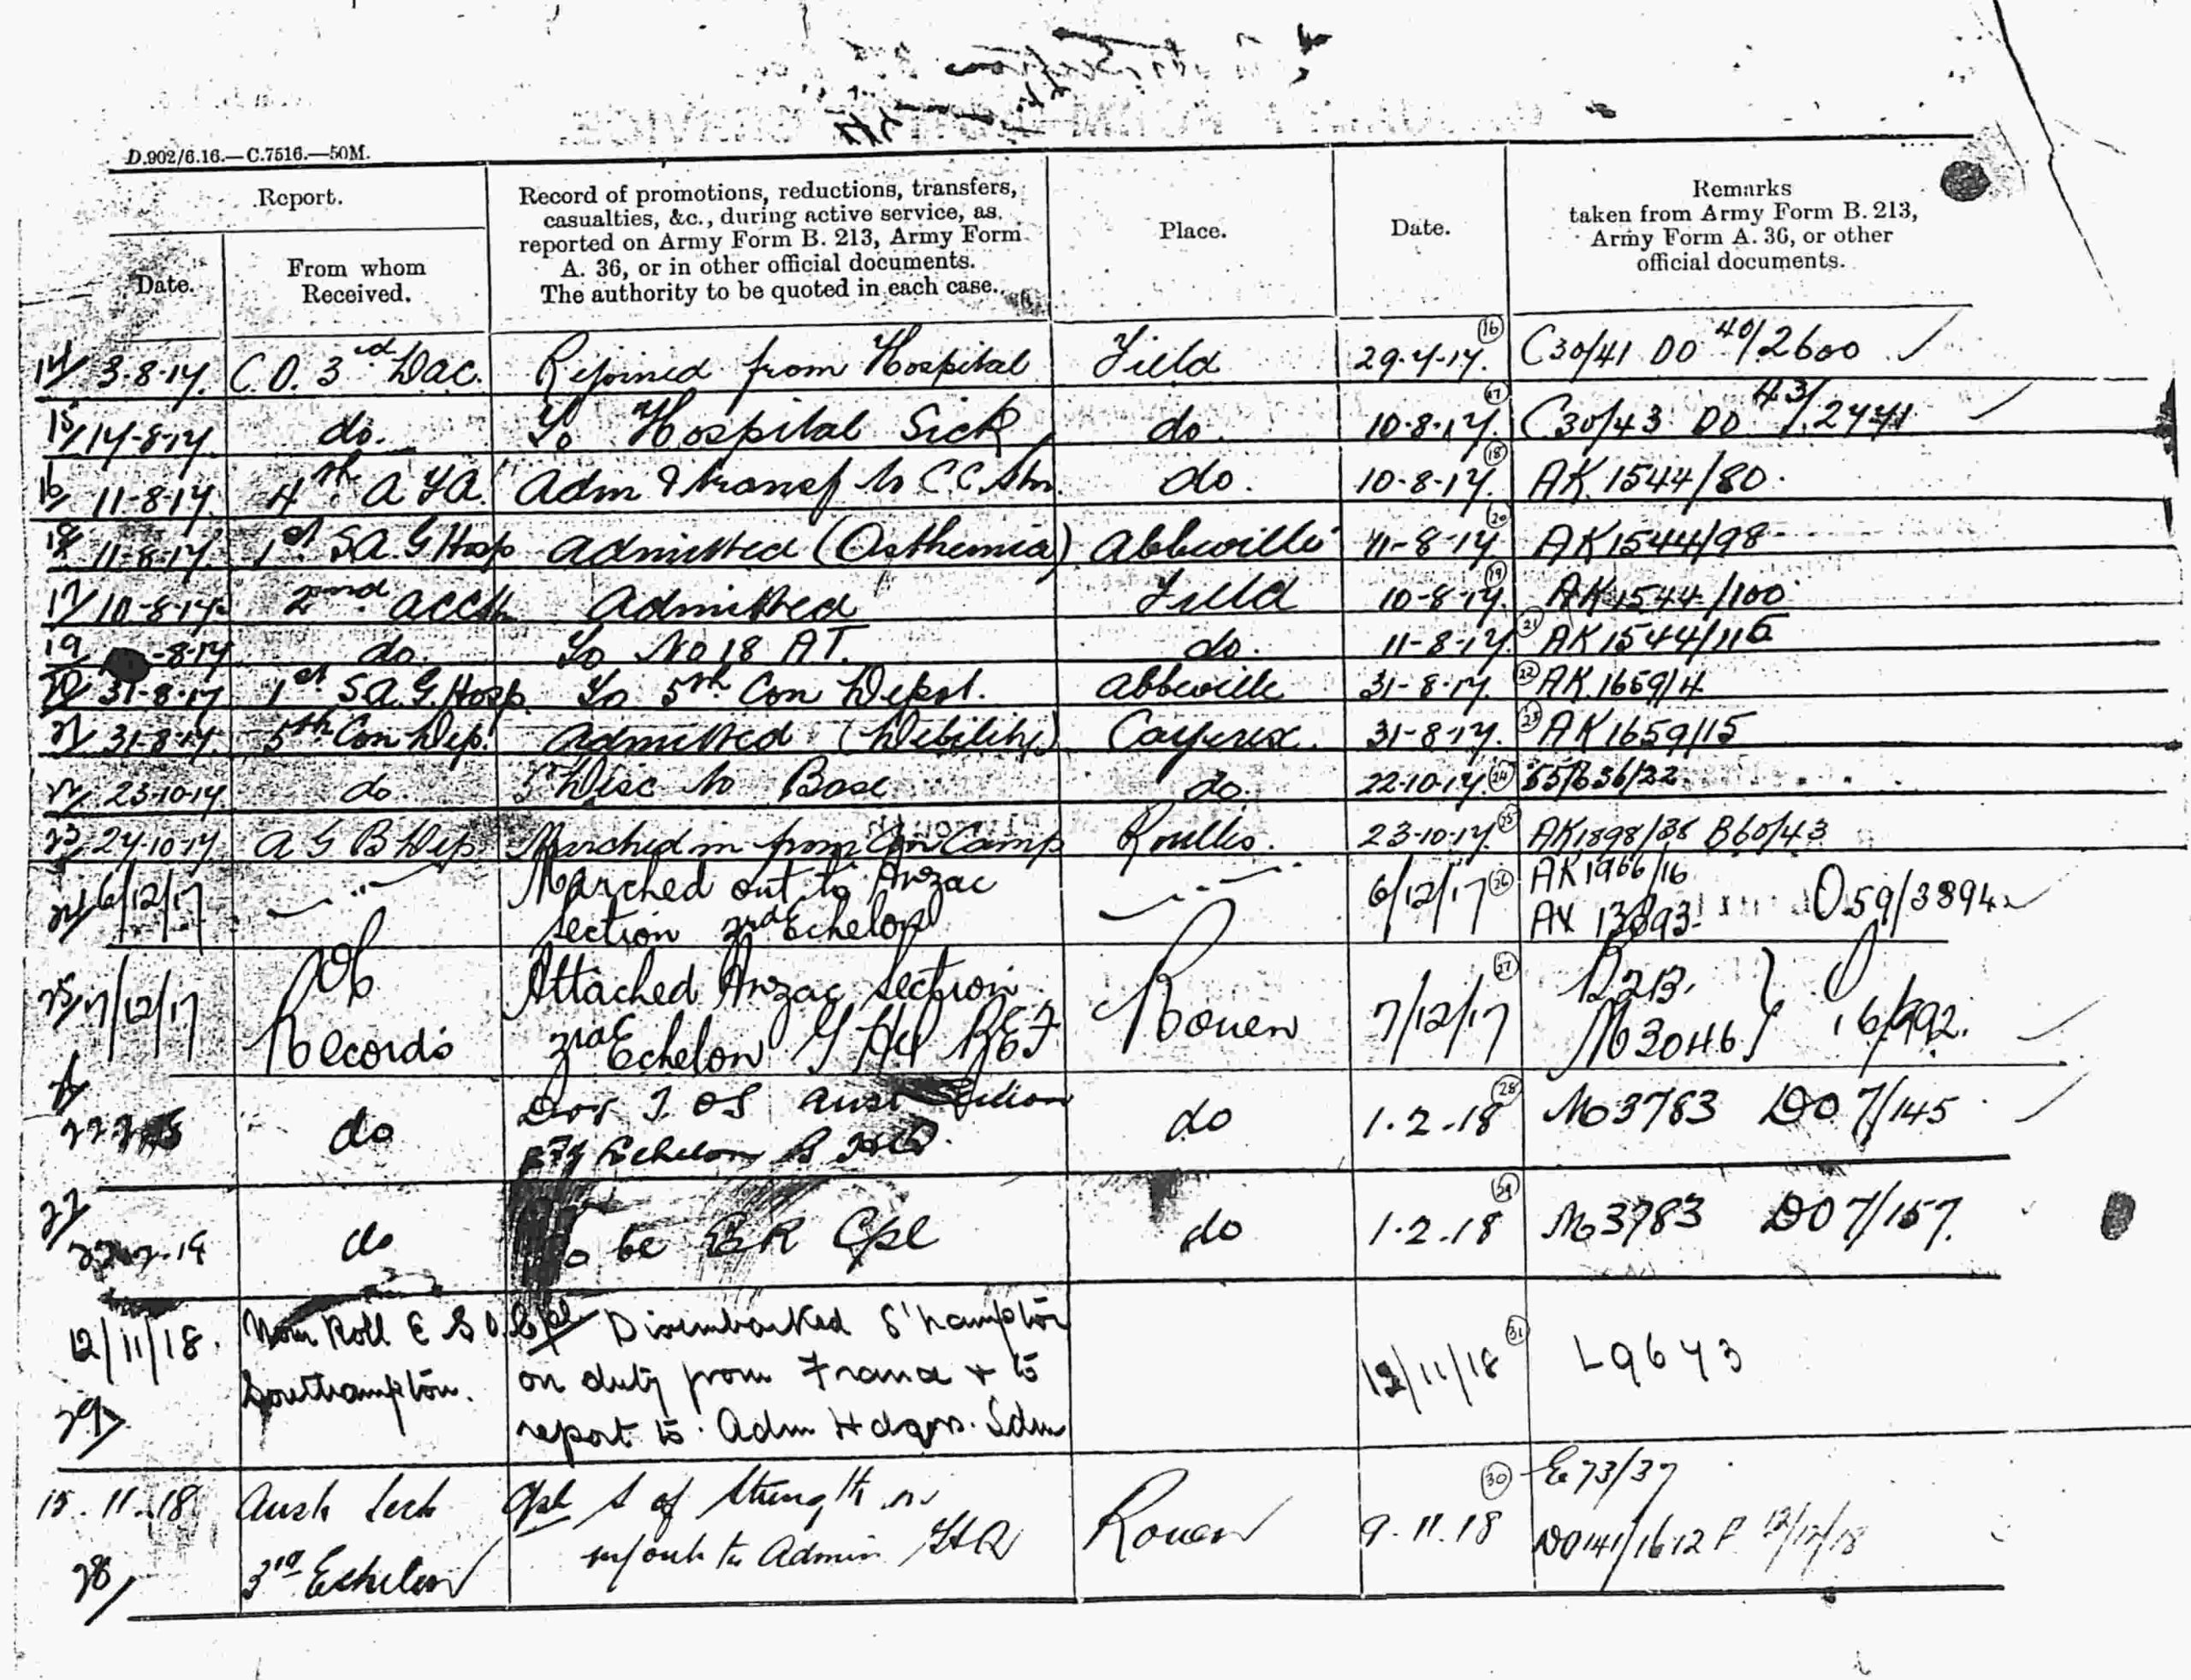 D.902/6.16.—C.7516.—50M.
Report.
Date.
From whom
Received.
Record of promotions, reductions, transfers,
casualties, &c., during active service, as
reported on Army Form B. 213, Army Form
A. 36, or in other official documents.
The authority to be quoted in each case.
Place.
Date.
Remarks
taken from Army Form B. 213,
Army Form A. 36, or other
official documents.
14/ 3-8-17. C.O. 3rd Dac. Rejoined from Hospital Field 29-7-17. (16) C30/41 DO 40/2600
15/ 14-8-17. do. To Hospital Sick do. 10-8-17. (17) C30/43 DO 43/2741
16/ 11-8-17. 4th A F A. Adm & transf to C.C. Stn. do. 10-8-17. (18) AK 1544/80.
18/ 11-8-17. 1st S.A. G Hosp admitted (Asthemia) Abbeville 11-8-17. (20) AK 1544/98
17/ 10-8-17. 2nd ACCS Admitted Field 10-8-17. (19) AK 1544/100
19/ -8-17 do. To No 18 AT. do. 11-8-17. (21) AK 1544/116
20/ 31-8-17 1st S.A. G. Hosp. To 5th Con Depot. Abbeville 31-8-17. (22) AK.1659/4
21/ 31-8-17. 5th Con Dep. Admitted (Debility) Cayeux. 31-8-17. (23) AK 1659/15
22/ 23-10-17 do. Disc to Base do. 22-10-17. (24) 55/B36/22.
23/ 24-10-17 A G B Dep Marched in from Con Camp Roulles. 23-10-17. (25) AK1898/38 B60/43
24/ 6/12/17 Marched out to Anzac 6/12/17 (26) AK1966/16
section 3rd Echelon AX 13893 O59/3894
25/ 7/12/17 Of Attached Anzac Section Rouen 7/12/17 (27) R2B.
Records 3rd Echelon G H Q BEF M30H6 } 16/992.
do Section do 1.2.18 (28) M3783 DO 7/145
Echelon
27/ do To be E R Cpl do 1.2.18 (29) M3783 DO 7/157.
12/11/18. Nom Roll E S O. Cpl Disembarked S'hampton 12/11/18 (31) L9643
Southampton. on duty from France & to
29/ report to Adm Hdqrs. Ldn
15.11.18 Aust Sect Cpl S of Strength on Rouen 9.11.18 (30) E73/37
28/ 3rd Echelon m/out to Admin HQ DO141/1612 P 12/12/18